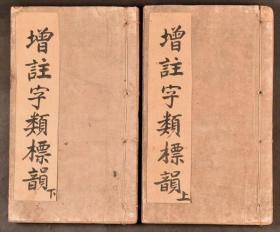 增註字類標韻上
增註字類標韻下